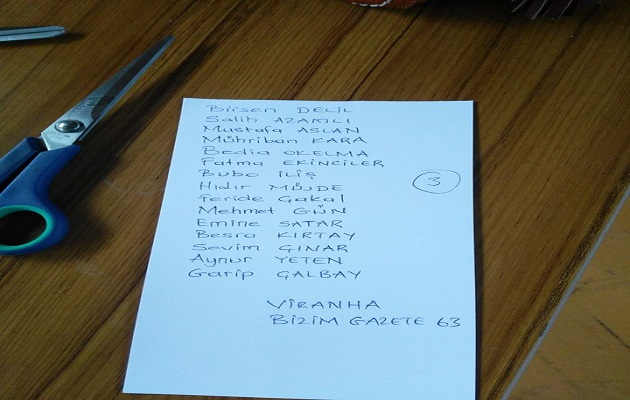 Birsen DELİL
Salih AZAMLI
Mustafa ASLAN
Mühriban KARA
Bedia OKELMA
Fatma EKİNCİLER
Bubo İLİŞ
Hıdır MÜJDE
Feride Gakal
Mehmet GÜN
Emine SATAR
Besra KIRTAY
Sevim GINAR
Aynur YETEN
Garip GALBAY
3
VİRANHA
BİZİM GAZETE 63